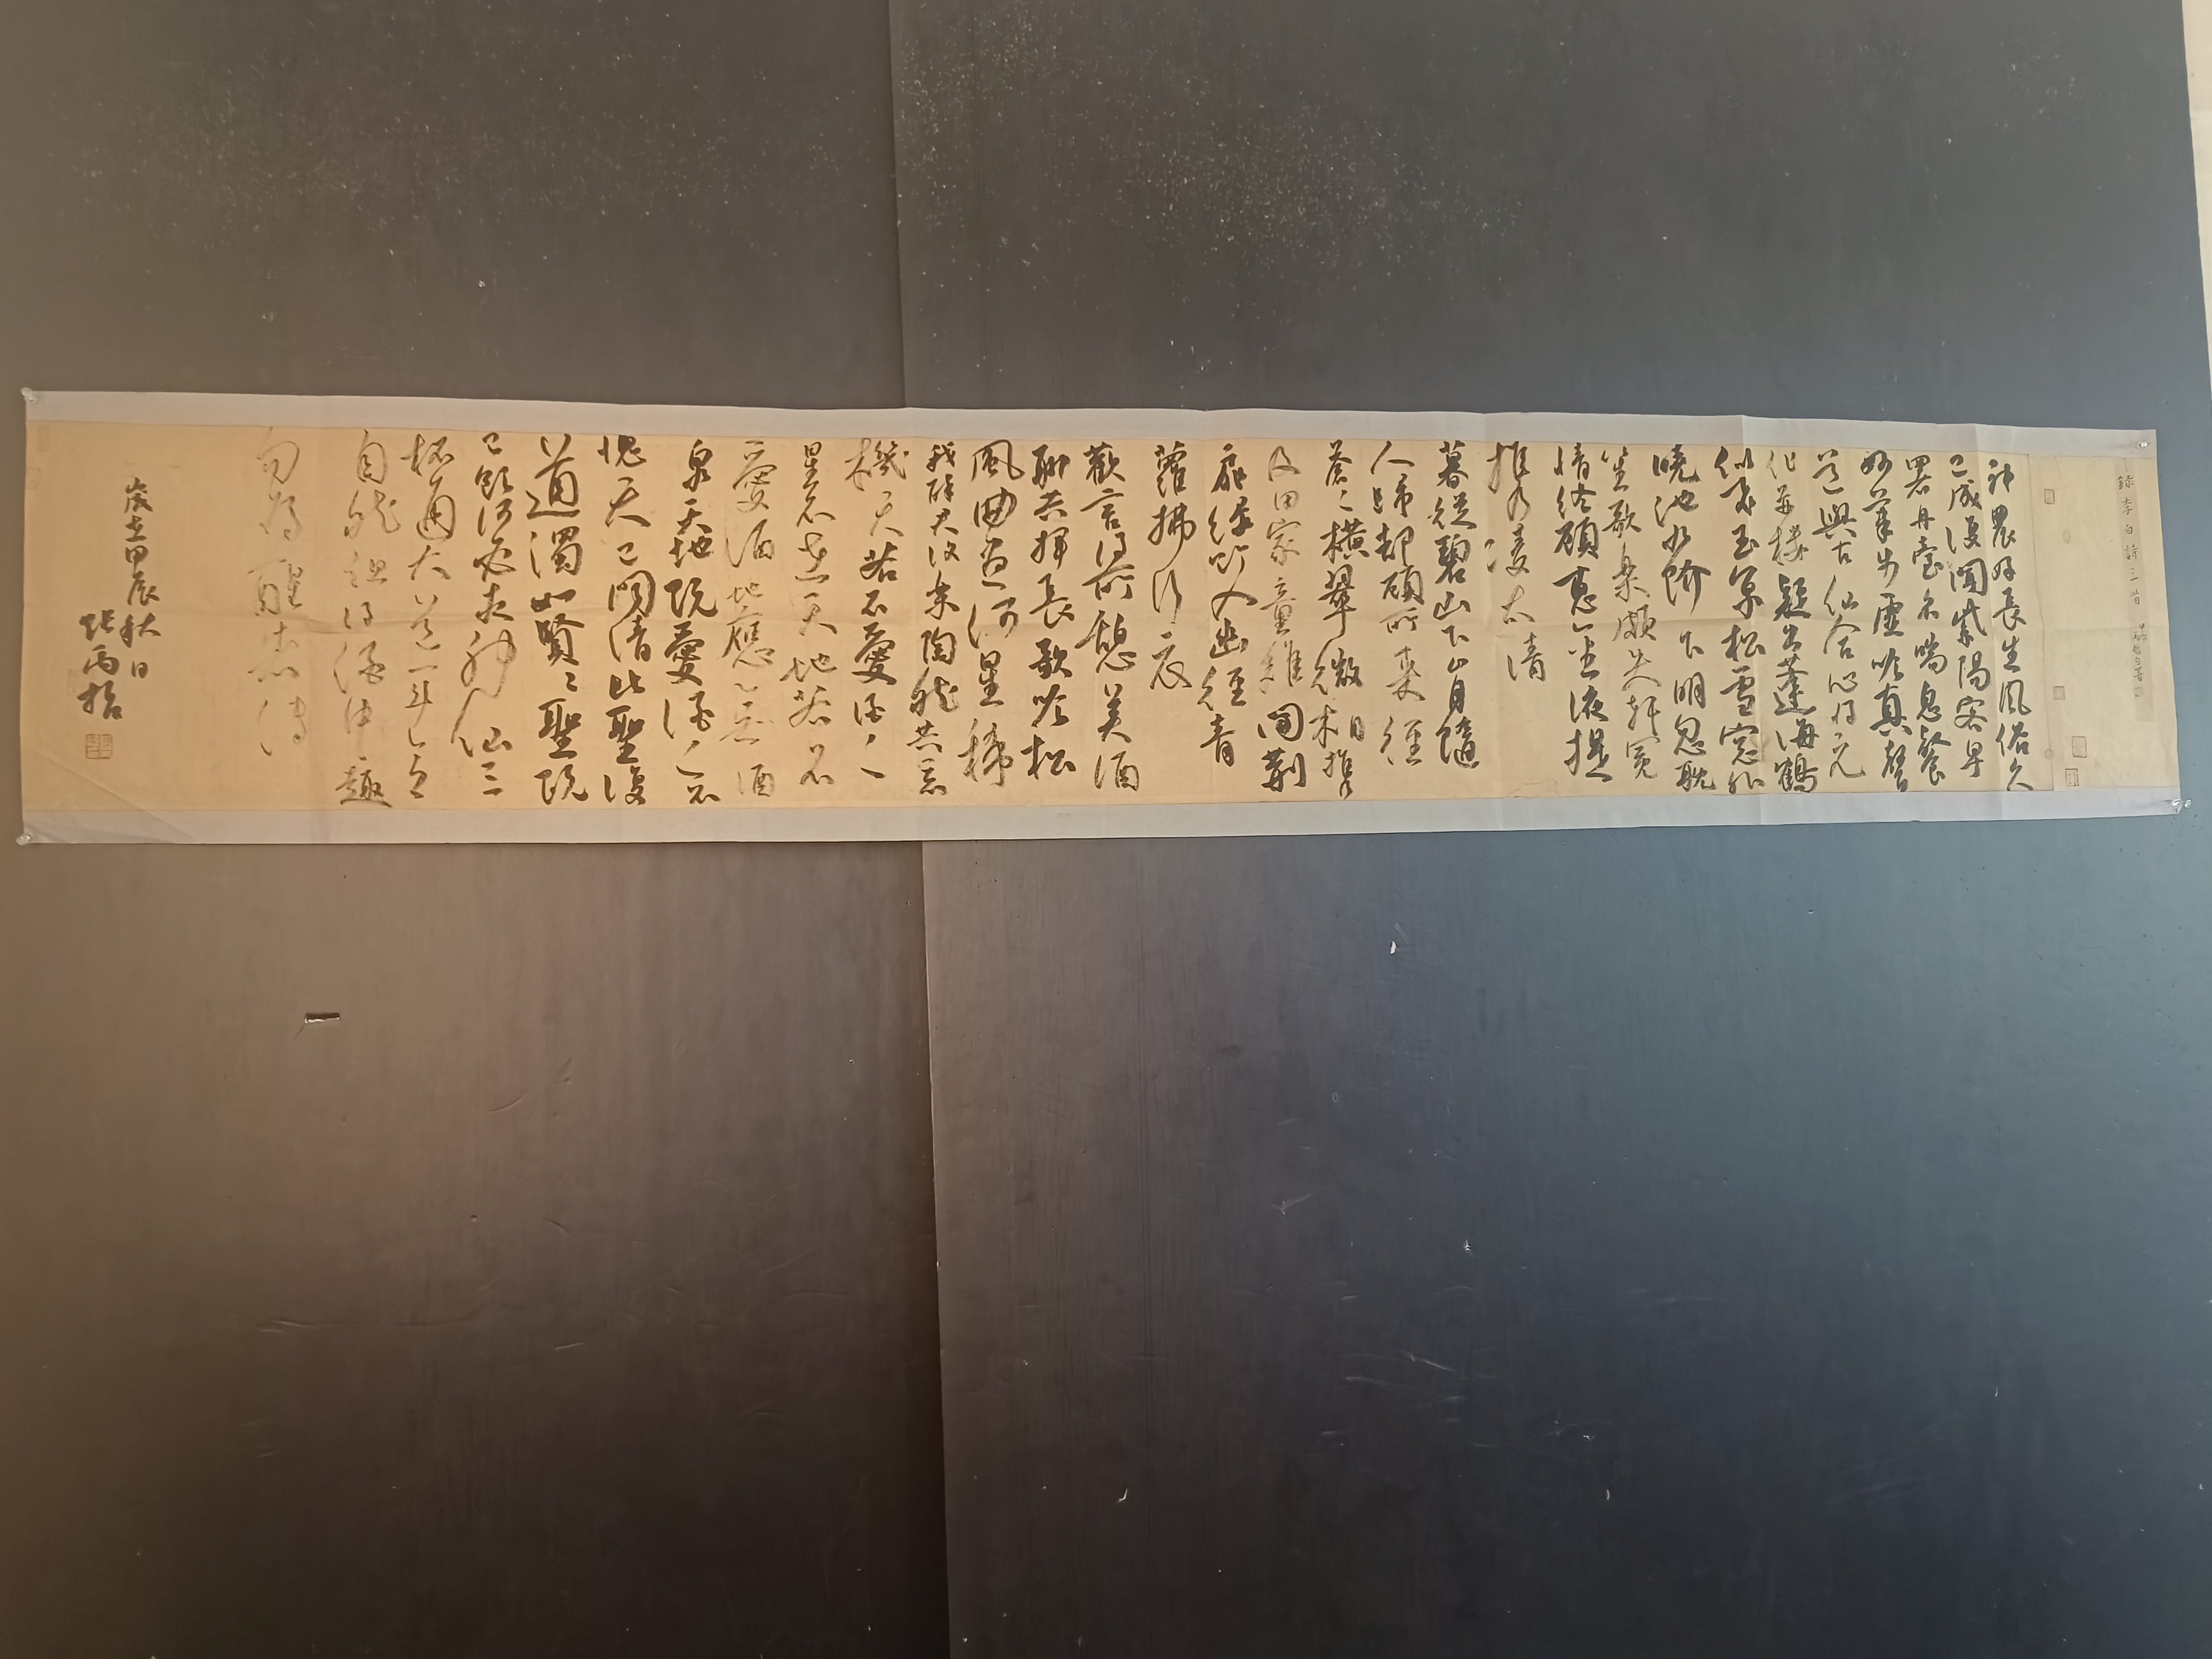 錄李白詩三首
神農好長生風俗久
已成復聞紫陽客早
署丹臺名喘息餐
妙氣步虛吟真聲
道與古仙合心將元
化並樓疑出蓬海鶴
似飛玉京松雪窓外
曉池水階下明忽耽
笙歌樂頗失軒冕
情終願惠金液提
攜凌太清
暮從碧山下山月隨
人歸卻顧所來徑
蒼〻橫翠微相攜
及田家童稚開荊
扉綠竹入幽徑青
蘿拂行衣
歡言得所憩美酒
聊共揮長歌吟松
風曲盡河星稀
我醉君復樂陶然共忘
機天若不愛酒〻
星不在天地若不
愛酒地應無酒
泉天地既愛酒〻不
愧天已聞清比聖復
道濁如賢〻聖既
已飲何必求神仙三
杯通大道一斗合
自然但得酒中趣
勿為醒者傳
歲在甲辰秋日
張丙